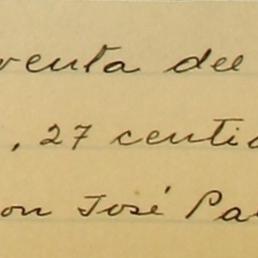 venta del
, 27 centi
on José Pa